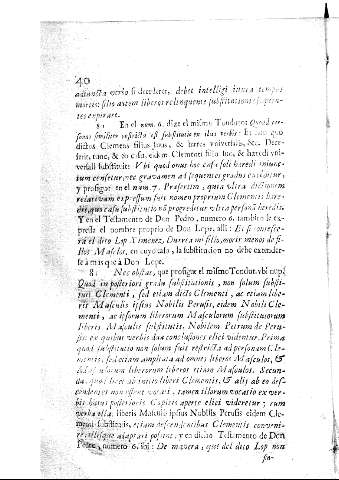 40
adiuncta verbo si decederet, debet intelligi intra tempus
mortis: filio autem liberos relinquente substitutione
tes expirare.
80 En el num. 6. dize el mismo Tonduto: Quod
similiter restricta est substitutio in illis verbis: Et
dictus Clemens filius suus, & hæres vniversalis, &c.
serit, tunc, & eo casu, eidem Clementi filio suo, & hæredi vni-
versali substituit: Vbi quod onus hoc casu soli hæredi iniunc-
tum censetur, nec gravamen ad sequentes gradus
y prosigue en el num. 7. Præsertim, quia vltra dictionem
relativam expressum fuit nomen proprium Clementis hære-
dis, quo casu substitutio non progreditur vltra personã
Y en el Testamento de Don Pedro, numero 6. tambien se ex-
pressa el nombre proprio de Don Lope, alli: Et si
el dito Lop Ximenez, Durrea mi filio, morrà menos de fi-
llos Masclos, en cuyo caso, la substitucion no debe extender-
se à mas que à Don Lope.
81 Nec obstat, que prosigue el mismo Tondut. vbi supr.
Quod in posteriori gradu substitutionis, non solum substi-
tuit Clementi, sed etiam dicto Clementi, ac etiam libe-
ris Masculis ipsius Nobilis Perussis, eidem Nobili Cle-
menti, ac ipsorum liberorum Masculorum substitutorum
liberis Masculis substituit, Nobilem Petrum de Perus-
sis ex quibus verbis duæ conclusiones elici videntur. Prima
quod substitutio non solum fuit restricta ad personam Cle-
mentis, sed etiam ampliata ad omnes liberos Masculos, &
Masculorum liberorum liberos etiam Masculos. Secun-
da, quod licet ab initio liberi Clementis, & alij ab eo des-
cendentes non essent vocati, tamen illorum vocatio ex ver-
bis huius posterioris Capitis aperte elici videretur; cum
verba illa, liberis Masculis ipsius Nobilis Perussis eidem Cle-
menti substitutis, etiam descendentibus Clementis conveni-
re, illisque adaptari possint, y en dicho Testamento de Don
Pedro, numero 6. ibi: De manera, que del dito Lop mu
fu-